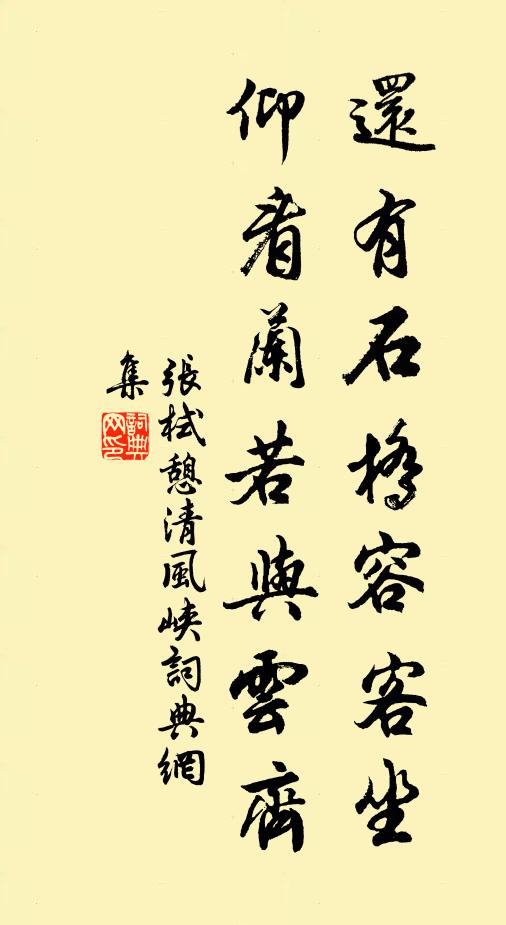 還有石橋容客坐
仰看蘭若與雲齊
張栻憩清風峽詞典網
集
詞典
网印